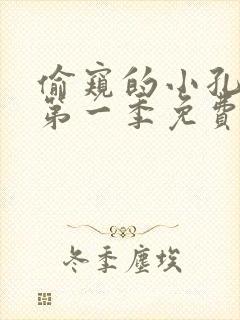 偷窺的小孔
第一季免費
冬季塵埃